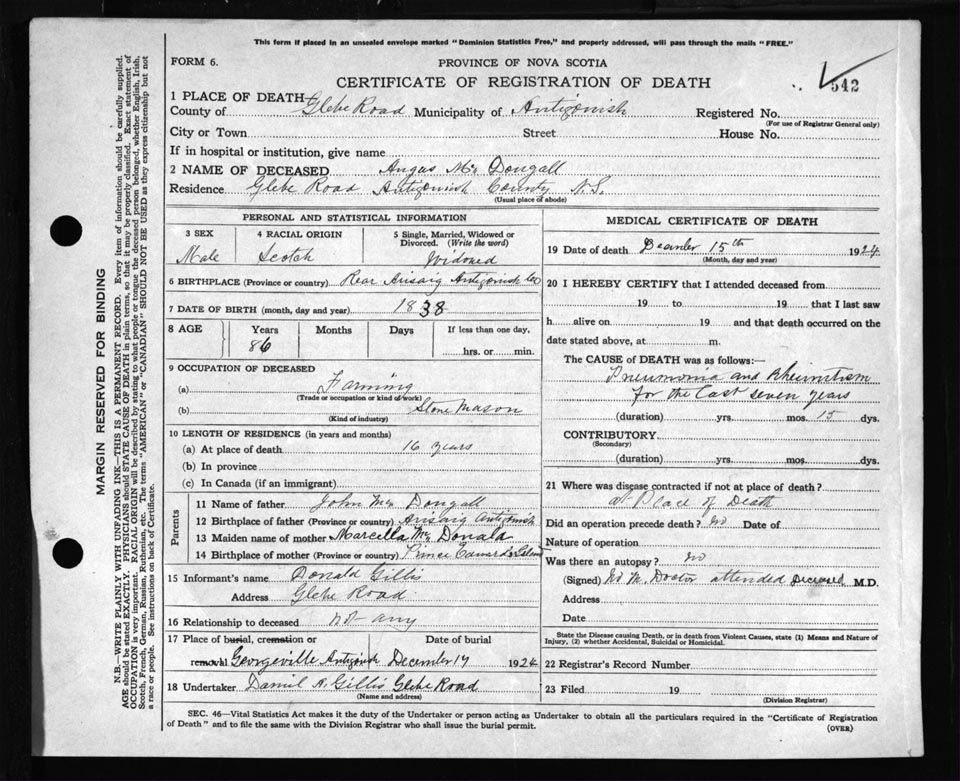 This form if placed in an unsealed envelope marked "Dominion Statistics Free," and properly addressed, will pass through the mails "FREE."
FORM 6.
PROVINCE OF NOVA SCOTIA
CERTIFICATE OF REGISTRATION OF DEATH
542
1 PLACE OF DEATH
County of Glebe Road Municipality of Antigonish Registered No.
(For use of Registrar General only)
City or Town Street House No.
If in hospital or institution, give name
2 NAME OF DECEASED Angus Mc Dongall
Residence Glebe Road Antigonish County N.S.
(Usual place of abode)
PERSONAL AND STATISTICAL INFORMATION
3 SEX 4 RACIAL ORIGIN 5 Single, Married, Widowed or Divorced. (Write the word)
Male Scotch Widowed
6 BIRTHPLACE (Province or country) Rear Arisaig Antigonish Co
7 DATE OF BIRTH (month, day and year) 1838
8 AGE Years Months Days If less than one day,
86 hrs. or min.
9 OCCUPATION OF DECEASED
(a) Farming
(Trade or occupation or kind of work)
(b) Stone Mason
(Kind of industry)
10 LENGTH OF RESIDENCE (in years and months)
(a) At place of death 16 years
(b) In province
(c) In Canada (if an immigrant)
Parents
11 Name of father John Mc Dongall
12 Birthplace of father (Province or country) Arisaig Antigonish
13 Maiden name of mother Marcella Mc Donald
14 Birthplace of mother (Province or country) Prince Edward Island
15 Informant's name Donald Gillis
Address Glebe Road
16 Relationship to deceased not any
17 Place of burial, cremation or Date of burial
removal Georgeville Antigonish December 17 1924
18 Undertaker Daniel A. Gillis Glebe Road
(Name and address)
MEDICAL CERTIFICATE OF DEATH
19 Date of death December 15th 1924
(Month, day and year)
20 I HEREBY CERTIFY that I attended deceased from
19 to 19 that I last saw
h alive on 19 and that death occurred on the
date stated above, at m.
The CAUSE OF DEATH was as follows:—
Pneumonia and Rheumitism
for the Last seven years
(duration) yrs. mos. 15 dys.
CONTRIBUTORY
(Secondary)
(duration) yrs. mos. dys.
21 Where was disease contracted if not at place of death?
at Place of Death
Did an operation precede death? No Date of
Nature of operation
Was there an autopsy? No
(Signed) No M. Doctor attended deceased M.D.
Address
Date
State the Disease causing Death, or in death from Violent Causes, state (1) Means and Nature of
Injury, (2) whether Accidental, Suicidal or Homicidal.
22 Registrar's Record Number
23 Filed 19
(Division Registrar)
SEC. 46—Vital Statistics Act makes it the duty of the Undertaker or person acting as Undertaker to obtain all the particulars required in the "Certificate of Registration
of Death" and to file the same with the Division Registrar who shall issue the burial permit.
(OVER)
MARGIN RESERVED FOR BINDING
N.B.—WRITE PLAINLY WITH UNFADING INK—THIS IS A PERMANENT RECORD. Every item of information should be carefully supplied.
AGE should be stated EXACTLY. PHYSICIANS should STATE CAUSE OF DEATH in plain terms, so that it may be properly classified. Exact statement of
OCCUPATION is very important. RACIAL ORIGIN will be described by stating to what people or tongue the deceased person belonged, whether English, Irish,
Scotch, French, German, Russian, Ruthenian, etc. The terms "AMERICAN" or "CANADIAN" SHOULD NOT BE USED as they express citizenship but not
a race or people. See instructions on back of Certificate.